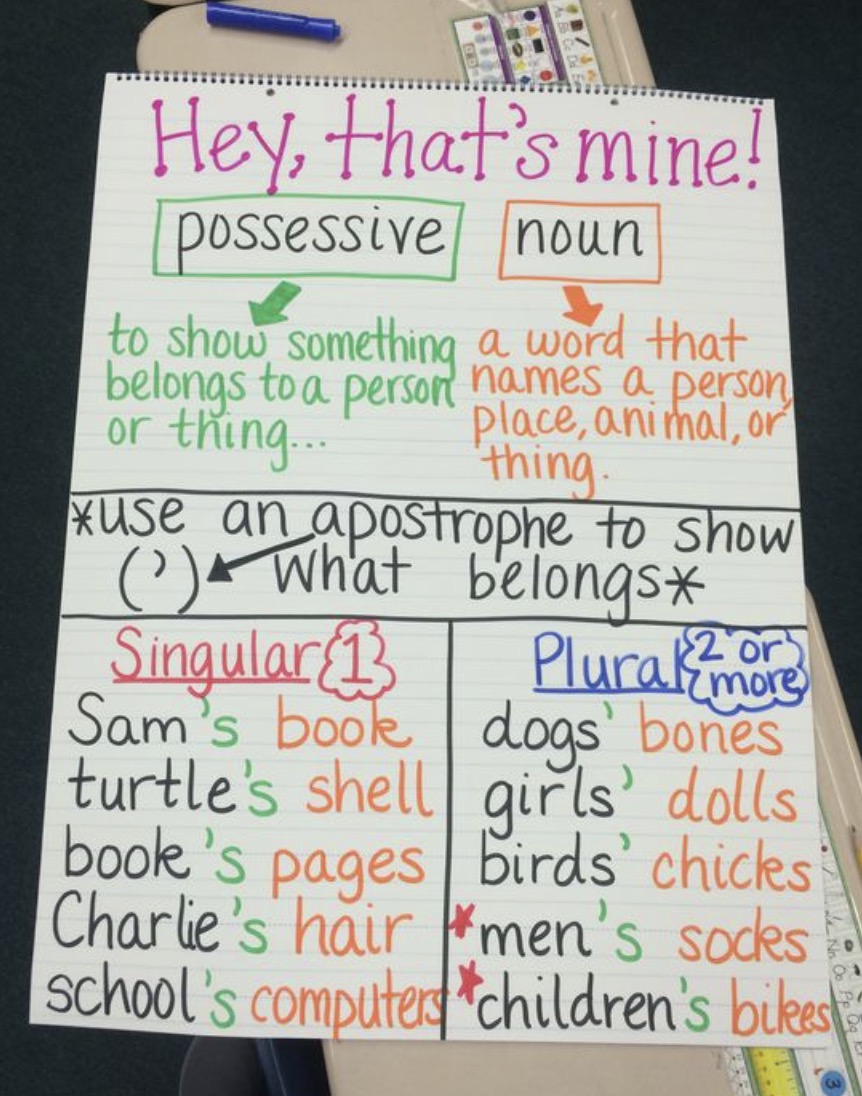 Hey, that's mine!
possessive noun
to show something
belongs to a person
or thing...
a word that
names a person,
place, animal, or
thing.
*use an apostrophe to show
(’) what belongs*
Singular 1
Sam's book
turtle's shell
book's pages
Charlie's hair
school's computers
Plural 2 or
more
dogs' bones
girls' dolls
birds' chicks
*men's socks
*children's bikes
3